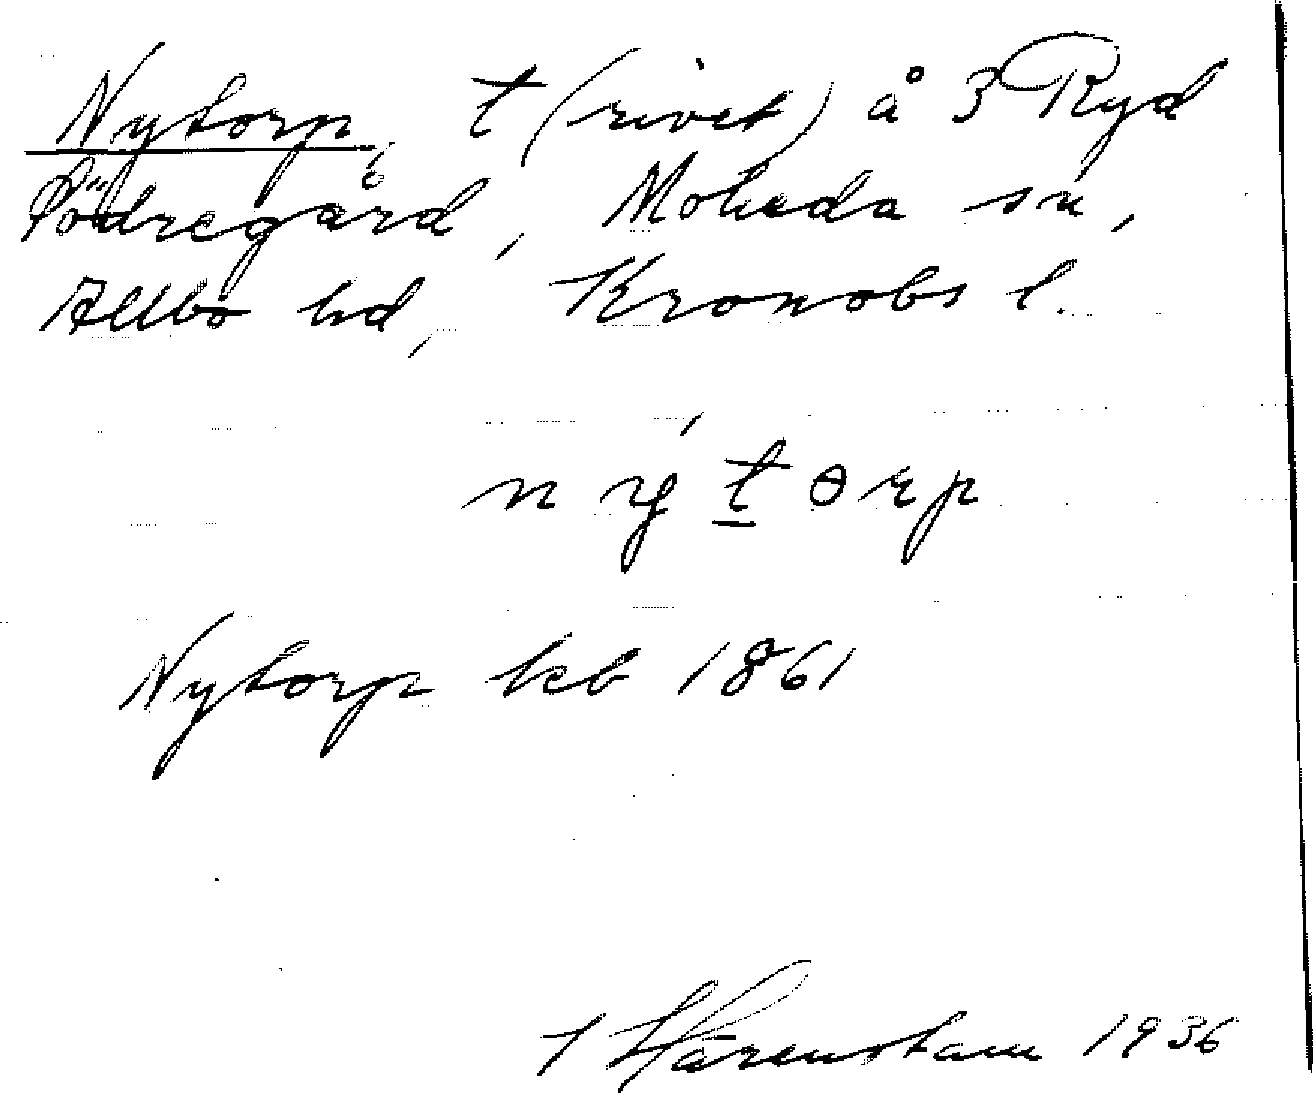 Nytorp, t (rivet) å 3 Ryd
Södregård, Moheda sn,
Allbo hd, Kronobs l.
n ý t̲ ɵ r p
Nytorp kb 1861
Härenstam 1936